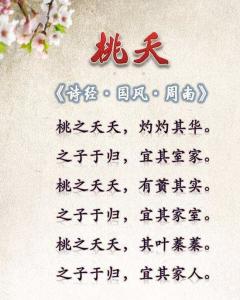 桃夭
《诗经·国风·周南》
桃之夭夭，灼灼其华。
之子于归，宜其室家。
桃之夭夭，有蕡其实。
之子于归，宜其家室。
桃之夭夭，其叶蓁蓁。
之子于归，宜其家人。